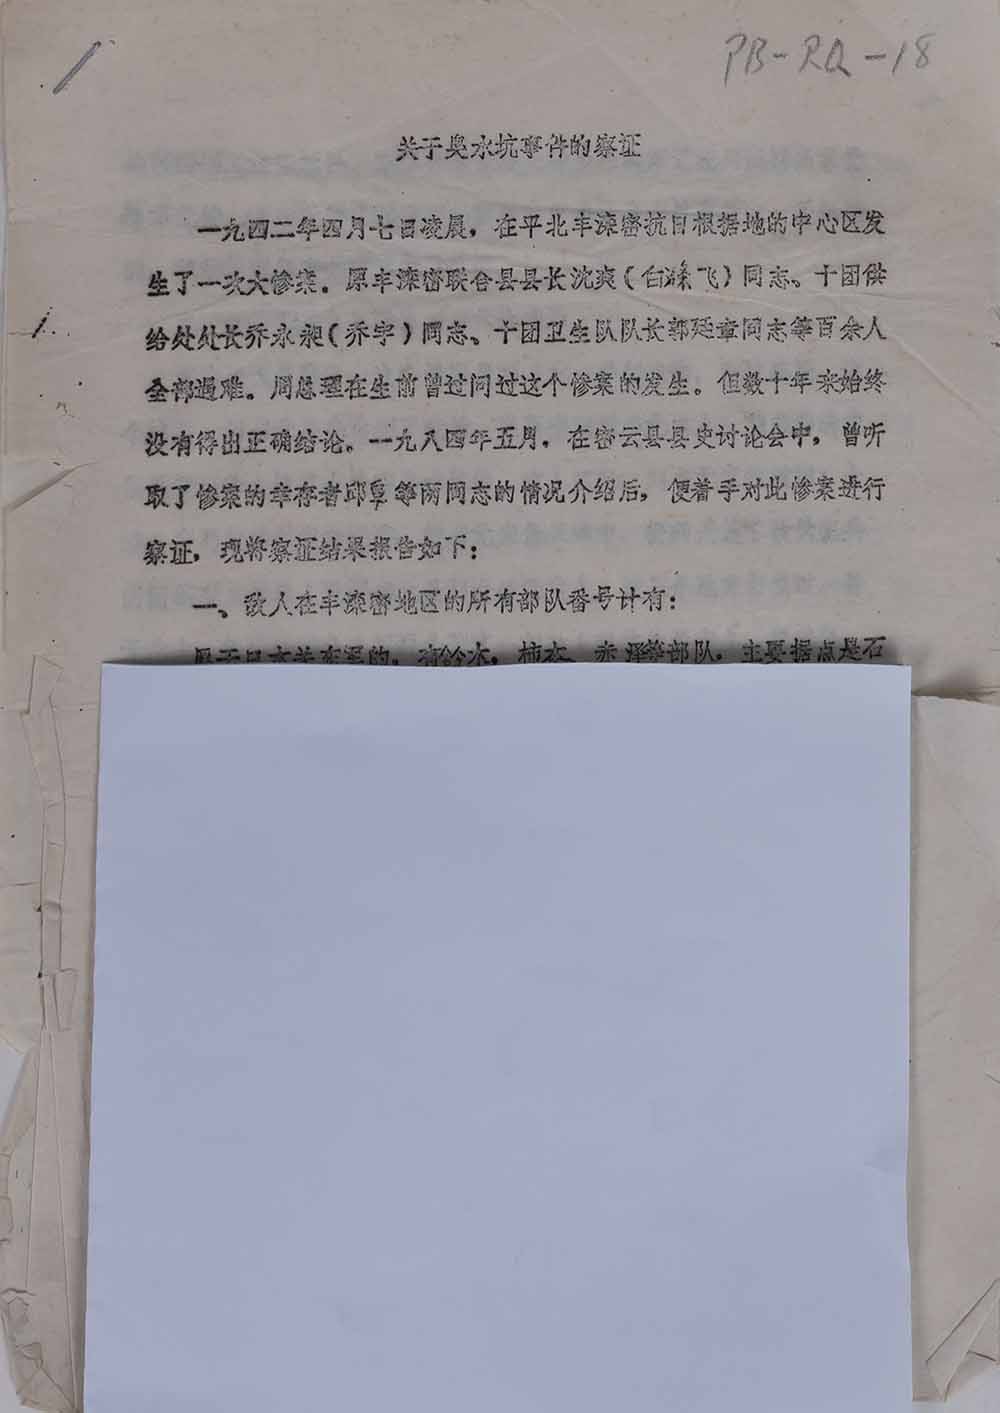 PB-RQ-18
关于臭水坑事件的察证
一九四二年四月七日凌晨，在平北丰滦密抗日根据地的中心区发
生了一次大惨案。原丰滦密联合县县长沈爽（白滁飞）同志、十团供
给处处长乔永昶（乔宇）同志、十团卫生队队长郭廷章同志等百余人
全部遇难。周总理在生前曾过问过这个惨案的发生。但数十年来始终
没有得出正确结论。一九八四年五月，在密云县县史讨论会中，曾听
取了惨案的幸存者邱 等两同志的情况介绍后，便着手对此惨案进行
察证，现将察证结果报告如下：
一、敌人在丰滦密地区的所有部队番号计有：
属于日本关东军的，有铃木，柿本、赤泽等部队，主要据点是石